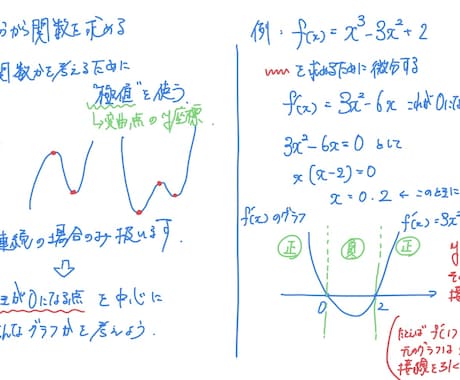 分から関数を求める
関数かを考えるために
"極値"を使う.
↳変曲点のy座標.
連続の場合のみ扱います.
⇩
が0になる点 を中心に
んなグラフかを考えよう.
例: f(x) = x³-3x²+2
を求めるために微分する
f'(x) = 3x²-6x これが0にな
3x²-6x=0 として
x(x-2)=0
x = 0.2 ← このときに
f'(x)のグラフ
f'(x)=3x²
正 負 正
0 2
y
その
接
たとえば f'(1)
元のグラフは
接線を引く